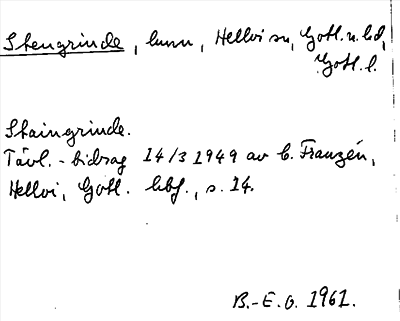 Stengrinde, hmn, Hellvi sn, Gotl. n. hd,
Gotl. l.
Staingrinde.
Tävl.-bidrag 14/3 1949 av C. Franzén,
Hellvi, Gotl. hbf., s. 14.
B.-E. O. 1961.